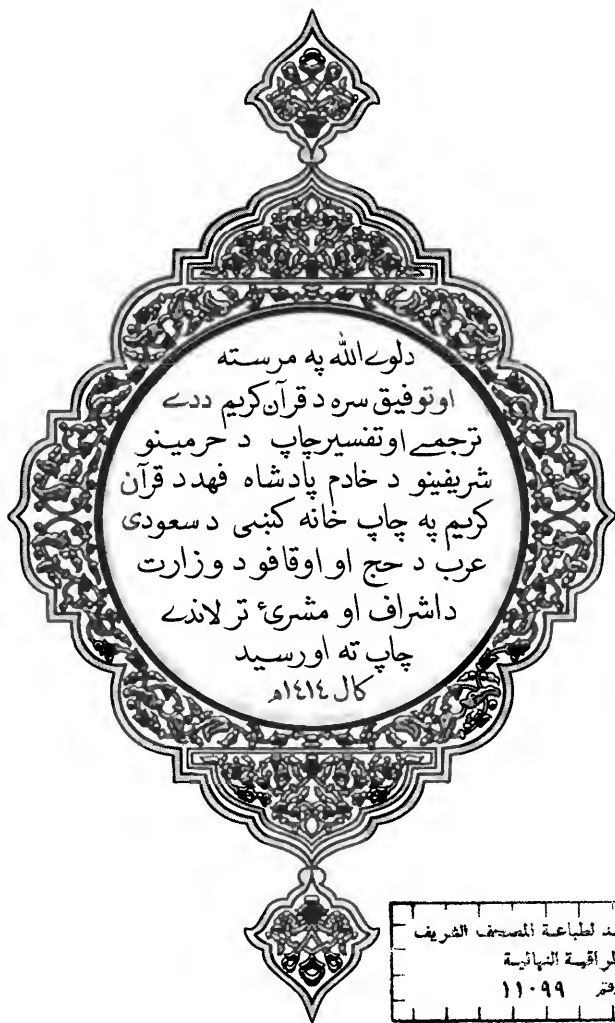 دلوے الله په مرسته
اوتوفیق سره د قرآن کریم ددے
ترجمے اوتفسیرچاپ د حرمینو
شریفینو د خادم پادشاه فهد د قرآن
کریم په چاپ خانه کښی د سعودی
عرب د حج او اوقافو د وزارت
داشراف او مشرئ تر لاندے
چاپ ته اورسید
کال ١٤١٤ه
لطباعة المصحف الشريف
النهائية
١١٠٩٩